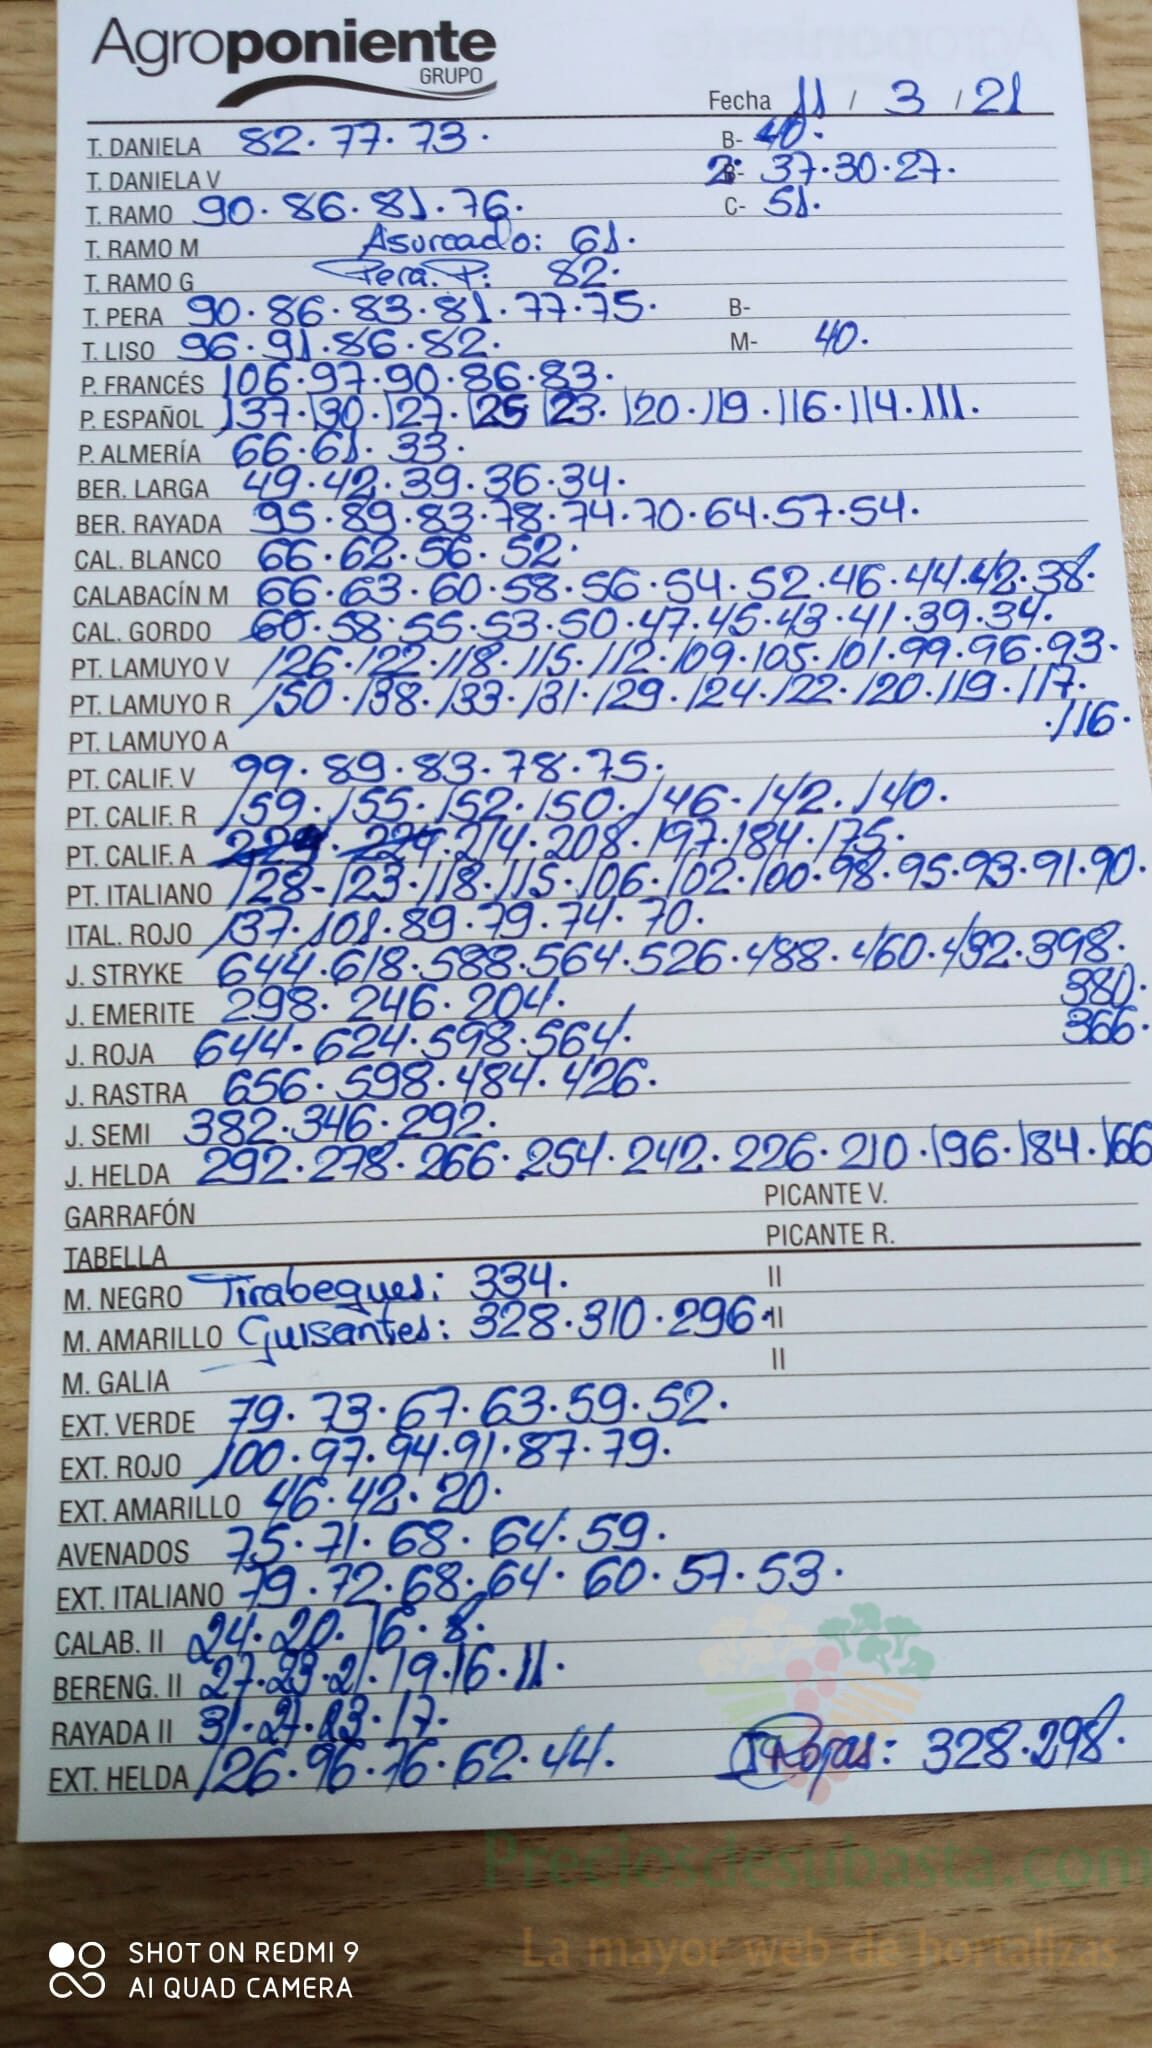 Agroponiente
GRUPO
Fecha 11 / 3 / 21
T. DANIELA 82. 77. 73. B- 40.
T. DANELA V 2: 37.30.27.
T. RAMO 90. 86. 81. 76. C- 51.
T. RAMO M Asurcado: 61.
T. RAMO G Pera. P: 82.
T. PERA 90. 86. 83. 81. 77. 75. B-
T. LISO 96. 91. 86. 82. M- 40.
P. FRANCÉS 106. 97. 90. 86. 83.
P. ESPAÑOL 137. 130. 127. 125 123. 120. 119. 116. 114. 111.
P. ALMERÍA 66. 61. 33.
BER. LARGA 49. 42. 39. 36. 34.
BER. RAYADA 95. 89. 83. 78. 74. 70. 64. 57. 54.
CAL. BLANCO 66. 62. 56. 52.
CALABACÍN M 66. 63. 60. 58. 56. 54. 52. 46. 44. 42. 38.
CAL. GORDO 60. 58. 55. 53. 50. 47. 45. 43. 41. 39. 34.
PT. LAMUYO V 126. 122. 118. 115. 112. 109. 105. 101. 99. 96. 93.
PT. LAMUYO R 150. 138. 133. 131. 129. 124. 122. 120. 119. 117.
PT. LAMUYO A .116.
PT. CALIF. V 99. 89. 83. 78. 75.
PT. CALIF. R 159. 155. 152. 150. 146. 142. 140.
PT. CALIF. A 214. 208. 197. 184. 175.
PT. ITALIANO 128- 123. 118. 115. 106. 102. 100. 98. 95. 93. 91. 90.
ITAL. ROJO 137. 101. 89. 79. 74. 70.
J. STRYKE 644. 618. 588. 564. 526. 488. 460. 432. 398.
J. EMERITE 298. 246. 204. 380.
J. ROJA 644. 624. 598. 564. 366.
J. RASTRA 656. 598. 484. 426.
J. SEMI 382. 346. 292.
J. HELDA 292. 278. 266. 254. 242. 226. 210. 196. 184. 166
GARRAFÓN PICANTE V.
TABELLA PICANTE R.
M. NEGRO Tirabeques: 334. II
M. AMARILLO Guisantes: 328. 310. 296. II
M. GALIA II
EXT. VERDE 79. 73. 67. 63. 59. 52.
EXT. ROJO 100. 97. 94. 91. 87. 79.
EXT. AMARILLO 46. 42. 20.
AVENADOS 75. 71. 68. 64. 59.
EXT. ITALIANO 79. 72. 68. 64. 60. 57. 53.
CALAB. II 24. 20. 16. 8.
BERENG. II 27. 23. 21. 19. 16. 11.
RAYADA II 31. 27. 23. 17.
EXT. HELDA 126. 96. 76. 62. 44. Rojas: 328. 298.
Preciosdesubasta.com
La mayor web de hortalizas
SHOT ON REDMI 9
AI QUAD CAMERA